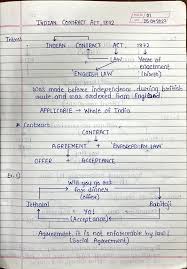 PAGE: 01
DATE: 05.04.2023
INDIAN CONTRACT ACT, 1872
Intro :
INDIAN CONTRACT ACT, 1872
LAW Year of enactment
"ENGLISH LAW" (birth)
Was made before independence, during british
rule and was borrowed from England
APPLICABLE → Whole of India
* Contract
CONTRACT
AGREEMENT + Enforced by law
OFFER ACCEPTANCE
Ex. 1)
Will you go out
for dinner
(Offer)
Jethalal Babitaji
Yes!
(Acceptance)
Agreement, it is not enforceable by law!
(Social Agreement)